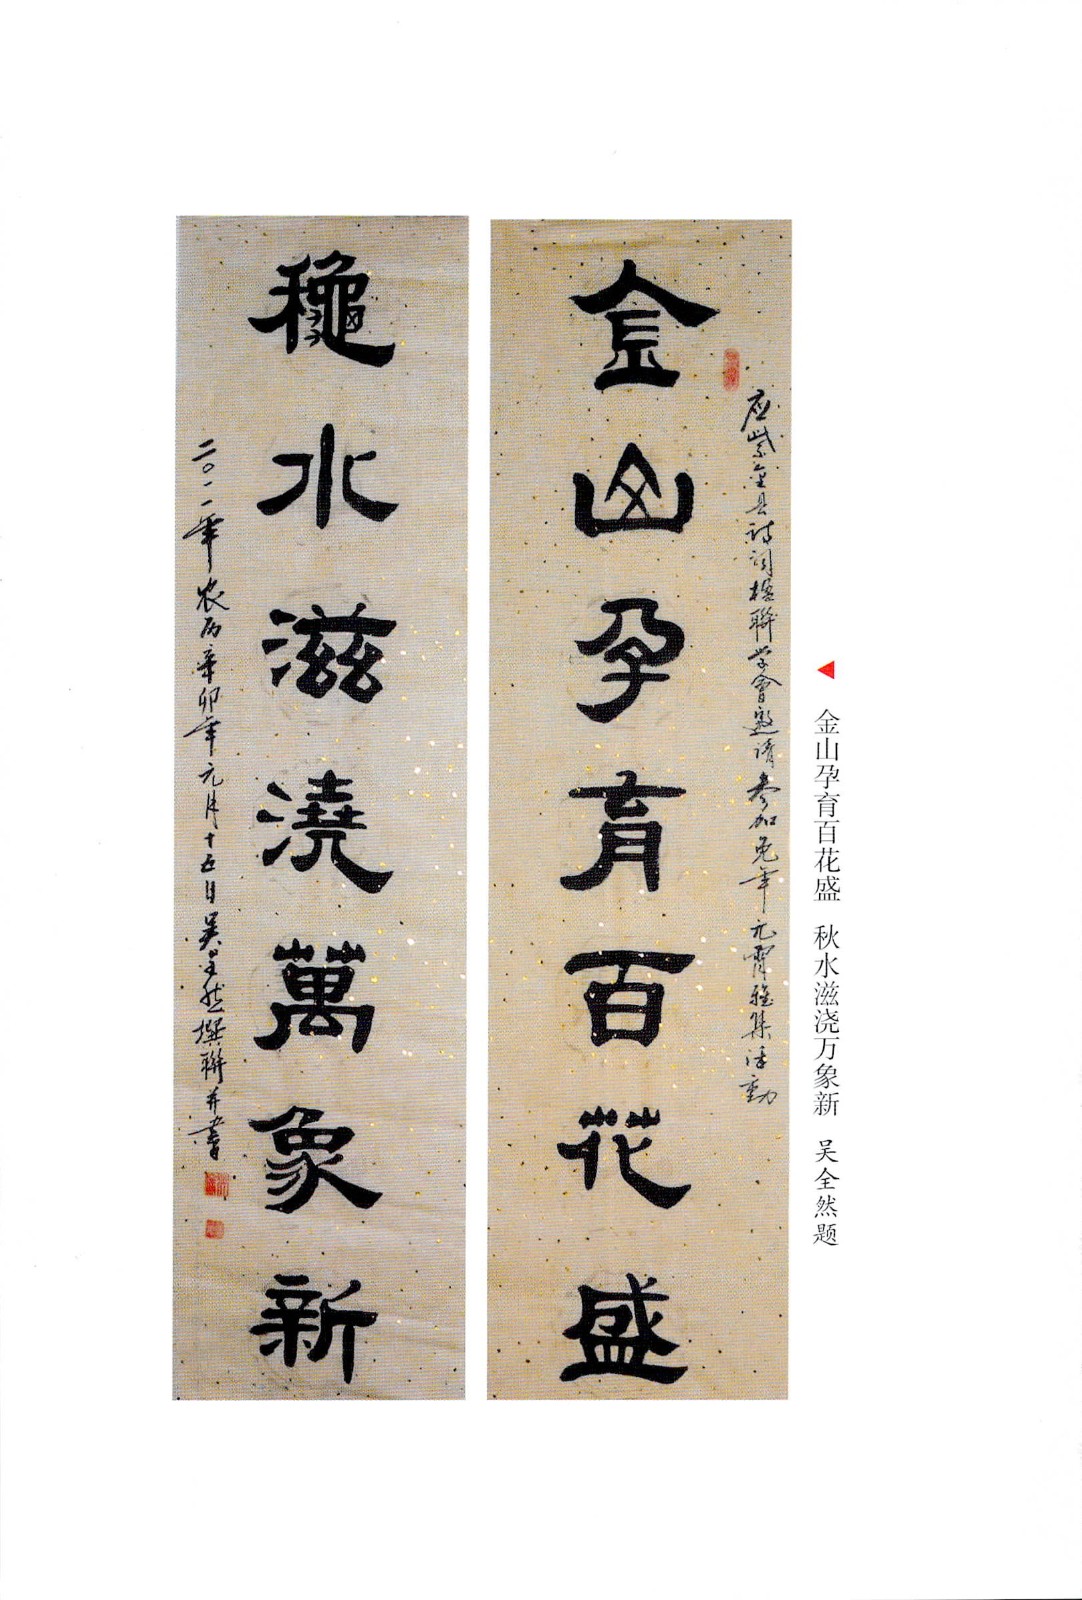 金山孕育百花盛 秋水滋浇万象新 吴全然题
应紫金县诗词楹聯学會邀请参加兔年元宵雅集活動
金山孕育百花盛
龝水滋澆萬象新
二〇一一年农历辛卯年元月十五日吴全然撰聯并書